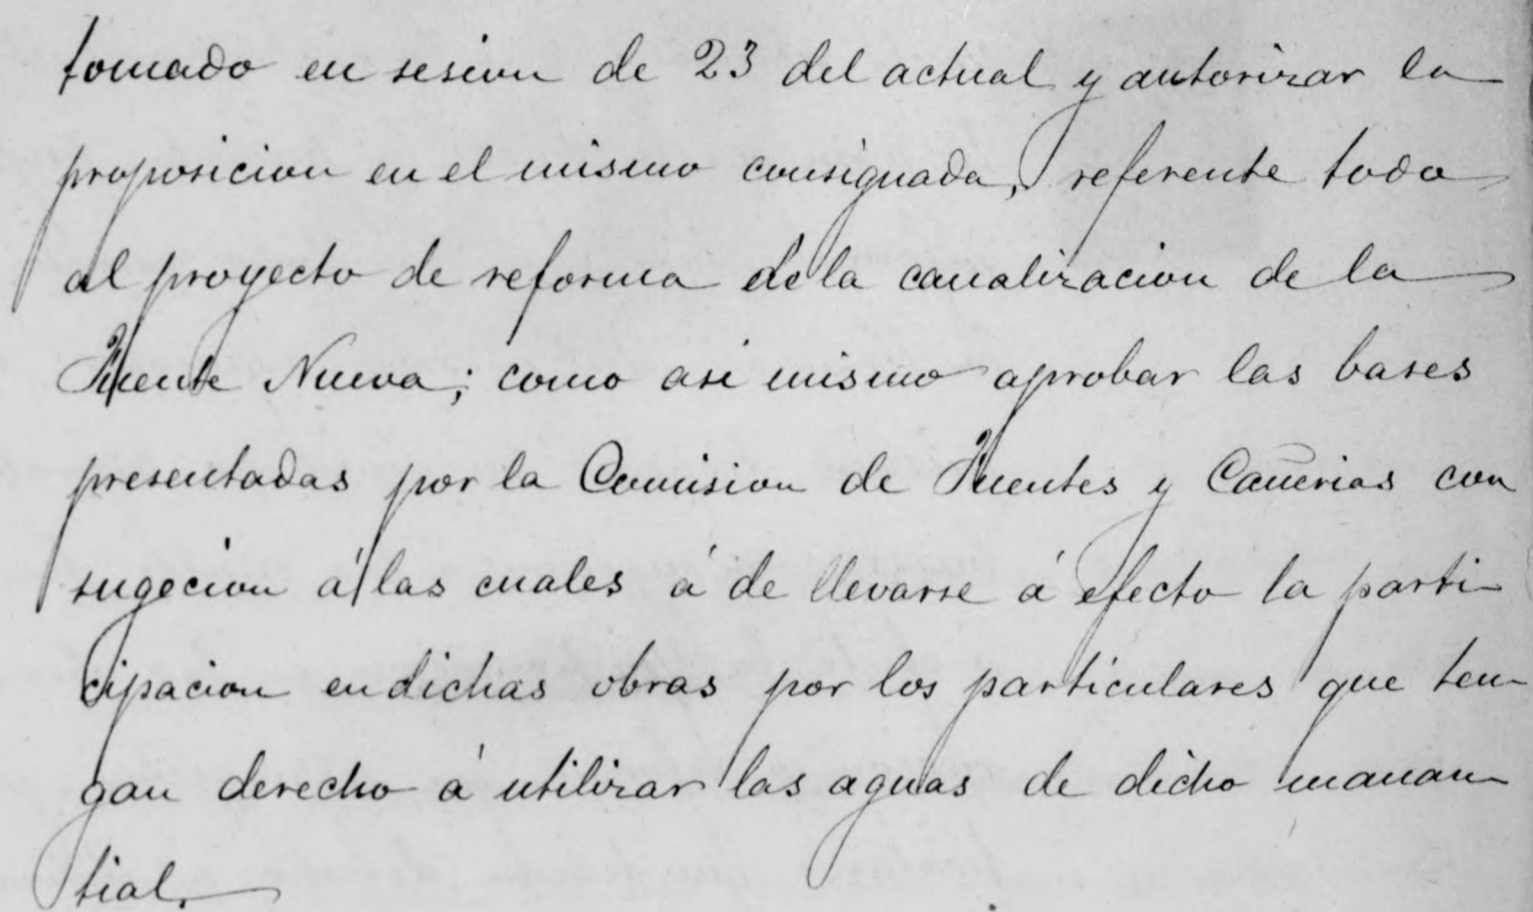 tomado en sesion de 23 del actual y autorizar la
proposicion en el mismo consignada, referente todo
al proyecto de reforma de la canalizacion de la
Fuente Nueva; como asi mismo aprobar las bases
presentadas por la Comision de Fuentes y Cañerias con
sugecion á las cuales á de llevarse á efecto la parti-
cipacion en dichas obras por los particulares que ten-
gan derecho á utilizar las aguas de dicho manan-
tial.